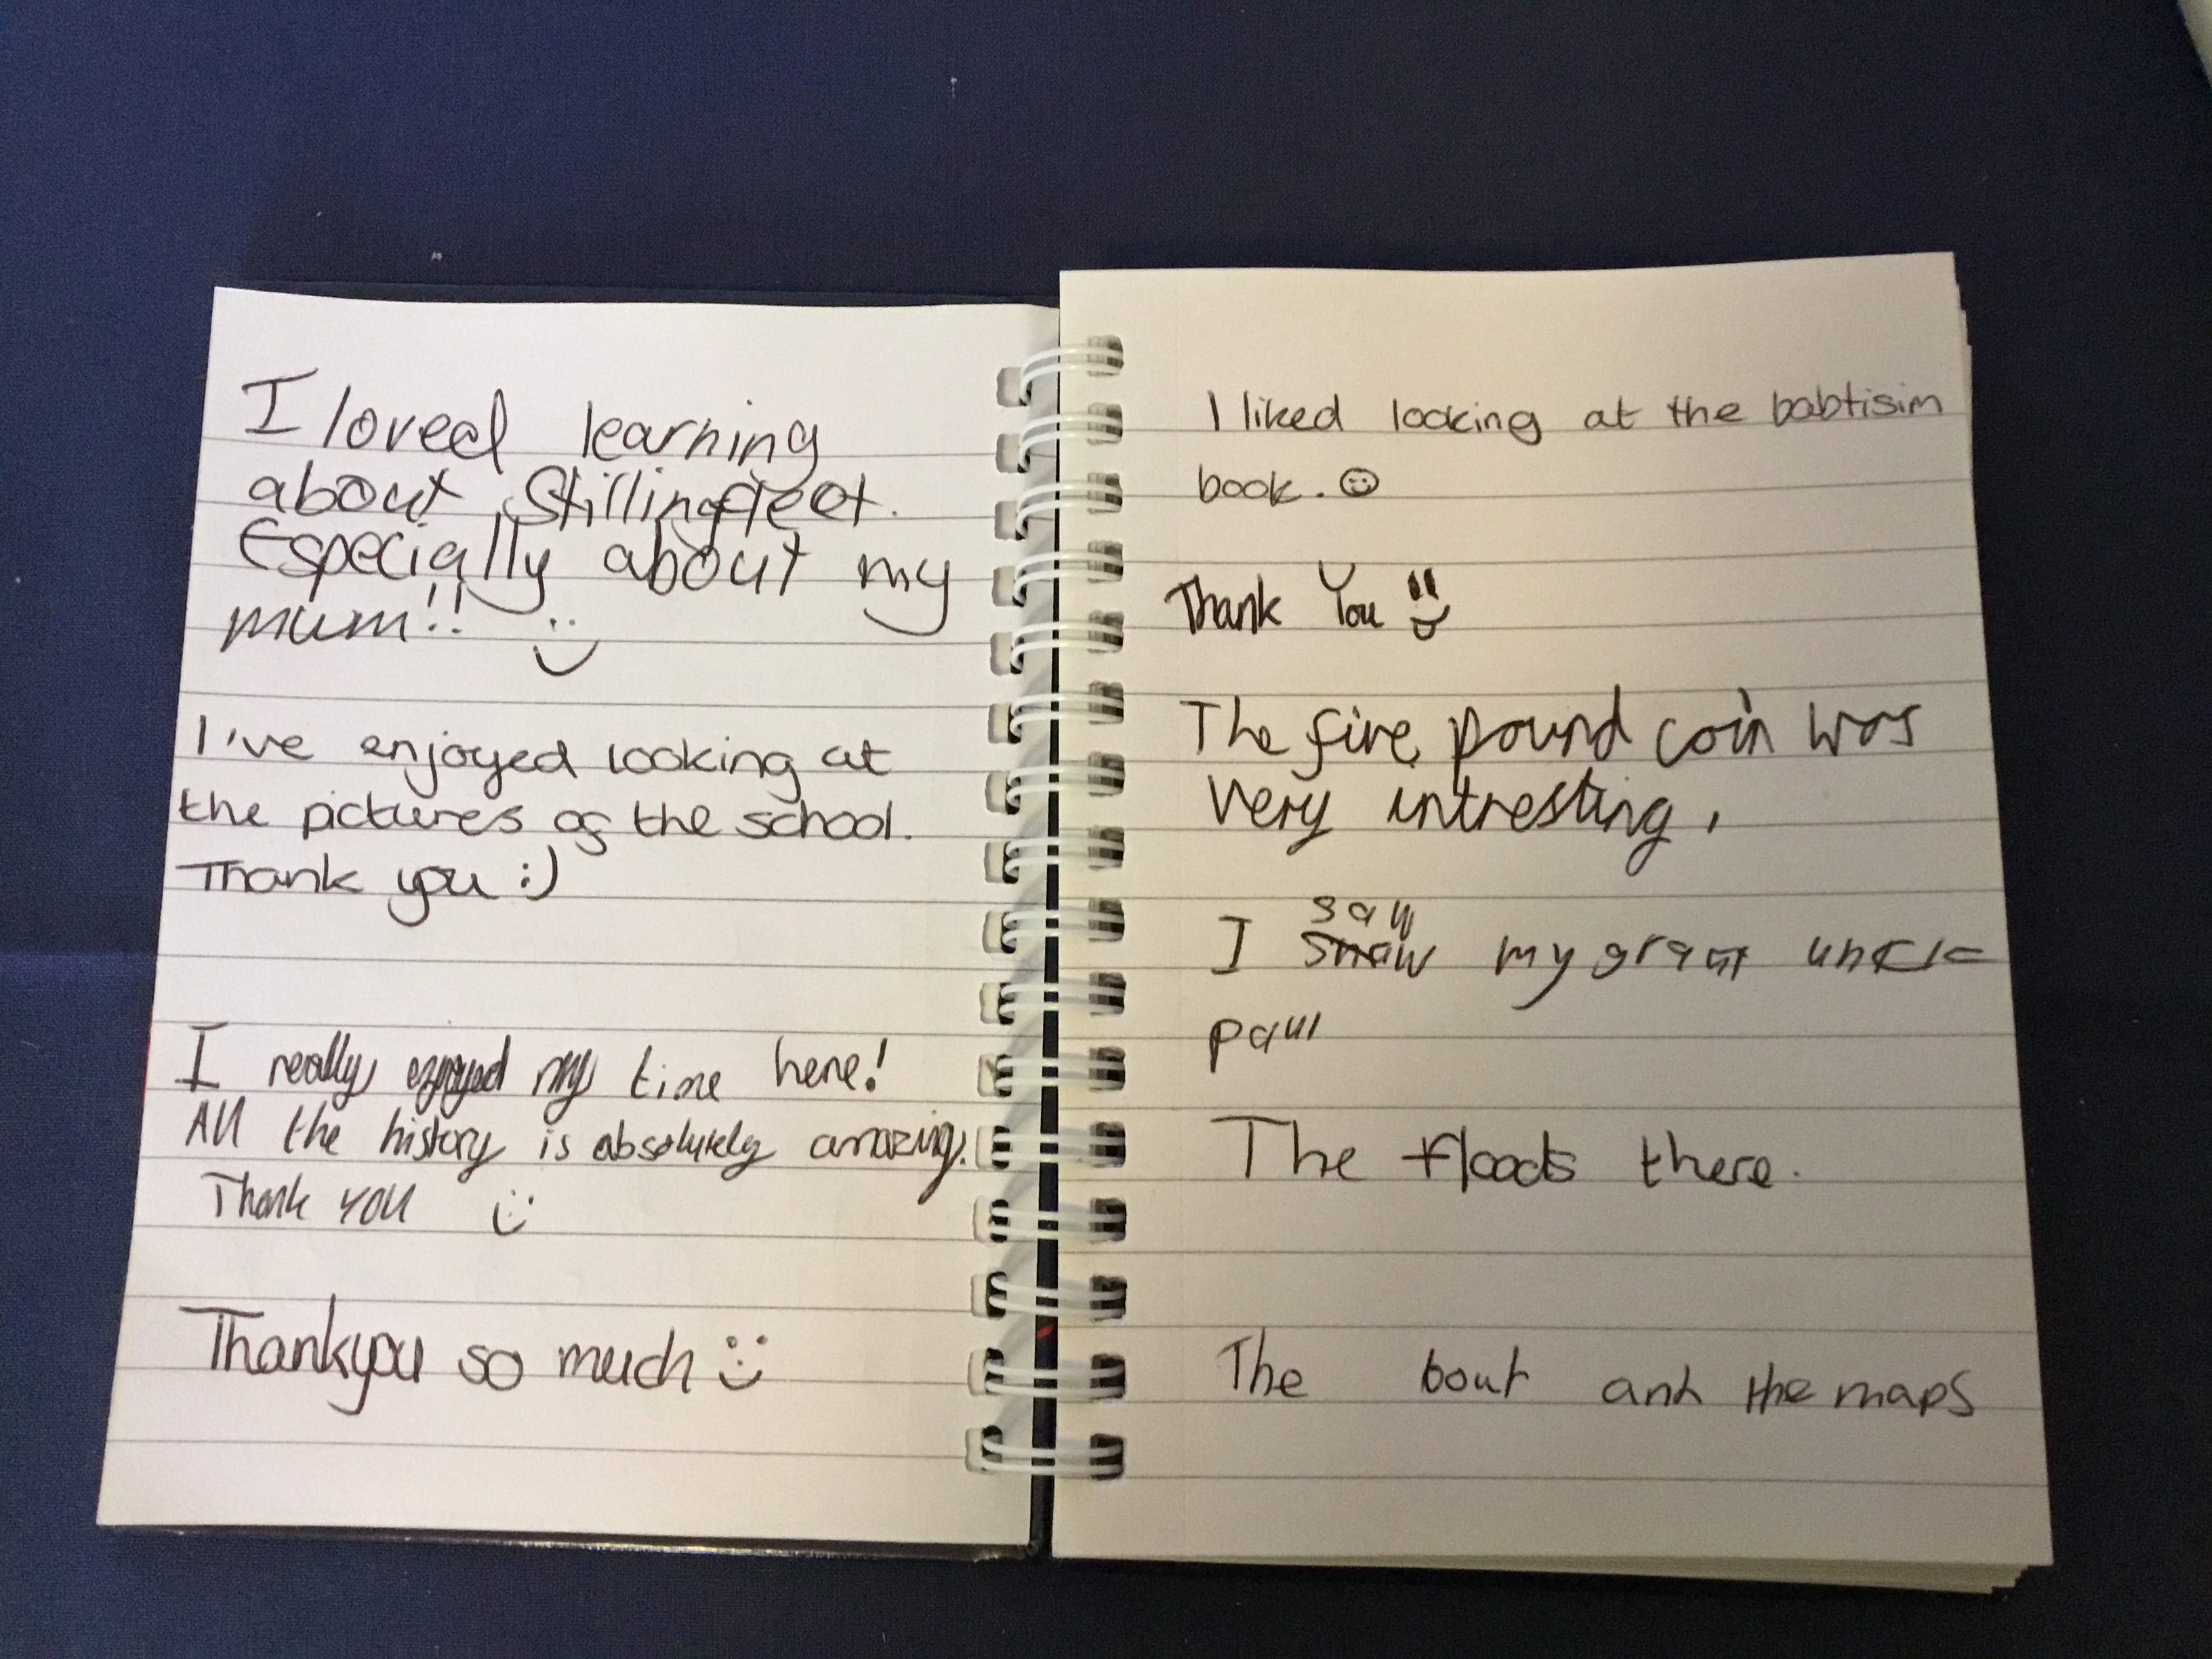 I loved learning
about Stillingfleet.
Especially about my
mum!! :)
I've enjoyed looking at
the pictures of the school.
Thank you :)
I really enjoyed my time here!
All the history is absolutely amazing.
Thank YOU :)
Thankyou so much :)
I liked looking at the babtisim
book. ☺
Thank You :)
The five pound coin was
very intresting.
saw
I snaw my grant uncle
paul
The floods there.
The bout anh the maps